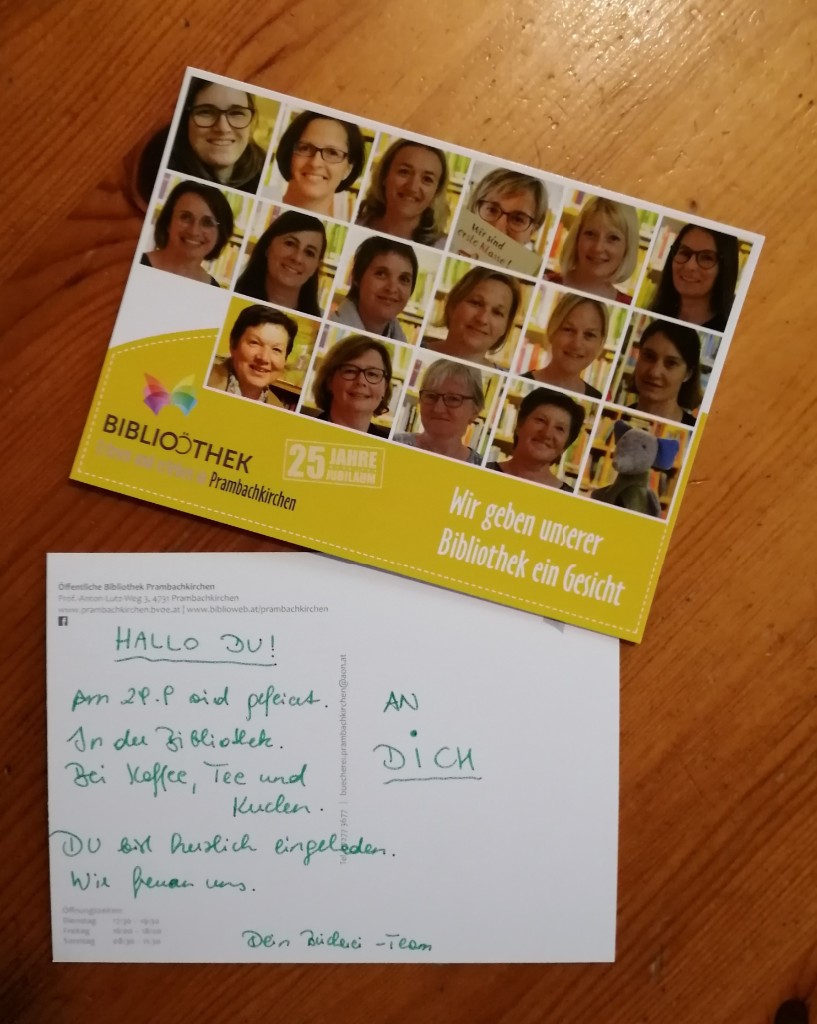 Wir sind
erste Klasse!
BIBLIOÖTHEK
Prambachkirchen
25 JAHRE
JUBILÄUM
Wir geben unserer
Bibliothek ein Gesicht
Öffentliche Bibliothek Prambachkirchen
Prof.-Anton-Lutz-Weg 3, 4731 Prambachkirchen
www.prambachkirchen.bvoe.at | www.biblioweb.at/prambachkirchen
HALLO DU!
Am 29.9 wird gefeiert.
In der Bibliothek.
Bei Kaffee, Tee und
Kuchen.
DU bist herzlich eingeladen.
Wir freuen uns.
Dein Bücherei-Team
AN
DICH
buecherei.prambachkirchen@aon.at
Öffnungszeiten:
Dienstag
Freitag
Sonntag